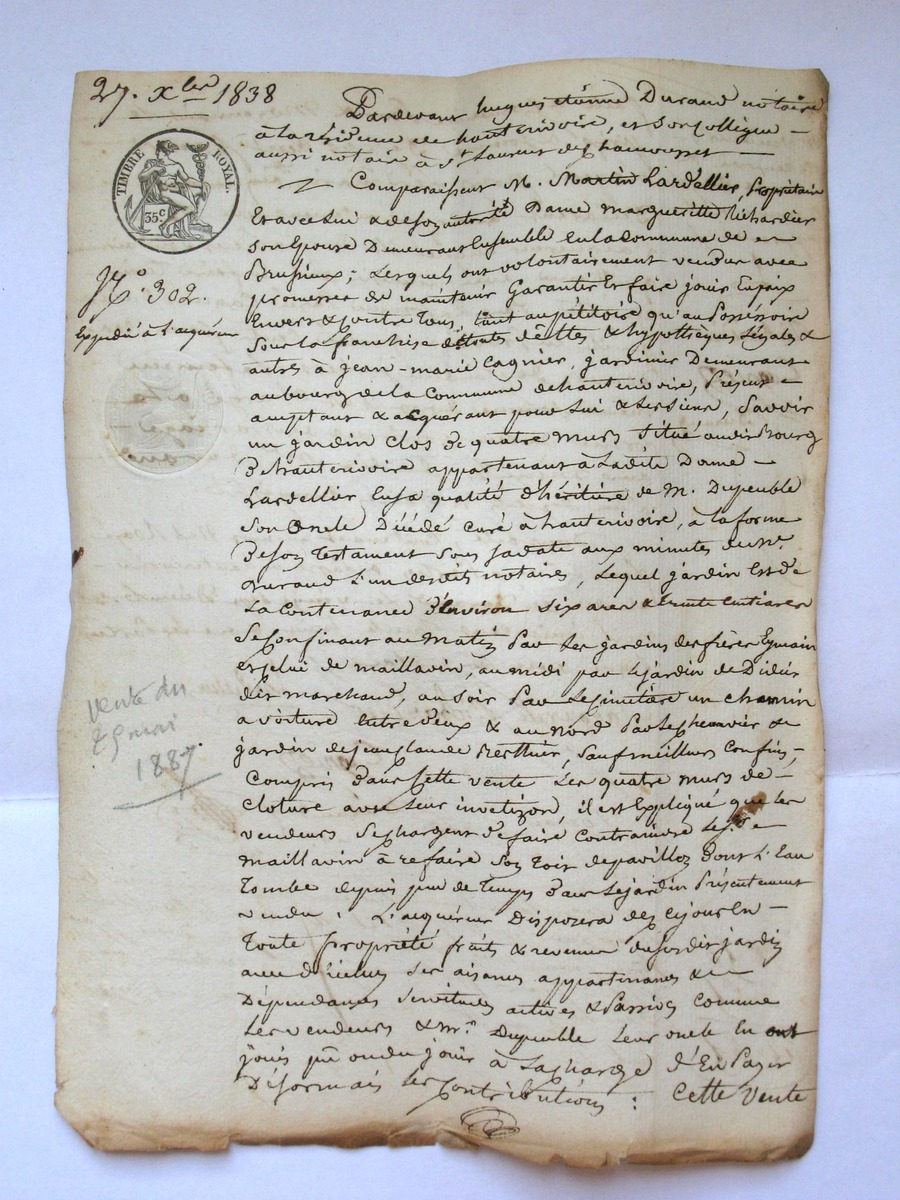 27. Xbre 1838
TIMBRE ROYAL.
35c
No. 302.
Expédié à l'acquéreur
vente du
1887
Pardevant hugues etienne Durand notaire
à la résidence de hauterivoire, et son collègue
aussi notaire à St. Laurent de chamousset
Comparaissent M. Martin Lardellier, Propriétaire
Et avec lui & de son autorité Dame marguerite Richardier
son Epouse Demeurant Ensemble En la commune de
Brussieux; Lesquels ont volontairement vendu avec
promesse de maintenir Garantir Et faire jouir En paix
Envers & contre Tous, tant au pétitoire qu'au Possessoire
Sous la franchise de toutes dettes & hypothèques Légales &
autres à jean-marie Cagnier, jardinier Demeurant
au bourg de la Commune de hauterivoire, Présent
acceptant & acquérant pour lui & les siens, Savoir
un jardin clos De quatre murs situé au dit Bourg
De hauterivoire appartenant à Ladite Dame
Lardellier En sa qualité d'héritière de M. Dupeuble
son Oncle Décédé curé à hauterivoire, à la forme
De son Testament sous sa date aux minutes de Me.
Durand L'un desdits notaires, Lequel jardin Est de
La Contenance d'Environ six ares & trente centiares
Se Confinant au Matin Par Les jardins des frères Eymain
et celui de maillavin, au midi par le jardin de Didier
dit marchand, au soir Par le cimetière un chemin
a voiture Entre deux & au Nord Par le chenevier &
jardin de jean claude Berthier, Sauf meilleurs Confins,
Compris Dans Cette vente Les quatre murs de
cloture avec leur invetizon, il est Expliqué que les
vendeurs se chargent de faire Contraindre le sr.
maillavin à refaire son Toit de pavillon Dont L'Eau
Tombe depuis peu de Temps Dans le jardin Présentement
vendu. L'acquéreur Disposera dez ce jour En
Toute Propriété fruits & revenus du susdit jardin
avec d'icelui ses aisances appartenances &
Dépendances Servitudes actives & Passives Comme
Les vendeurs & Mr. Dupeuble Leur oncle En ont
jouis pû ou du jouir à La charge d'En Payer
Désormais les Contributions: Cette Vente